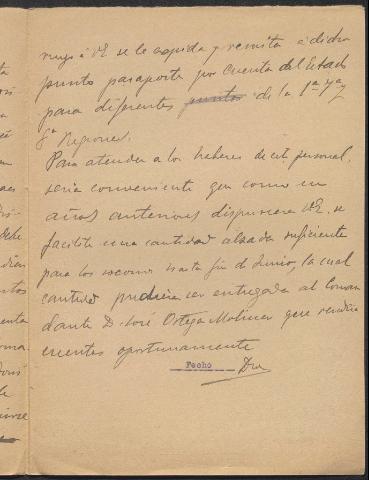 ruego á VE se le expida y remita á dicho
punto pasaporte por cuenta del Estado
para diferentes puntos de la 1ª 7ª y
8ª Regiones.
Para atender a los haberes de este personal,
seria conveniente que como en
años anteriores dispusiera VE. se
facilite una cantidad alzada suficiente
para los socorros hasta fin de Junio, la cual
cantidad pudiera ser entregada al Coman
dante D. José Ortega Moliner que rendiria
cuentas oportunamente
Fecho